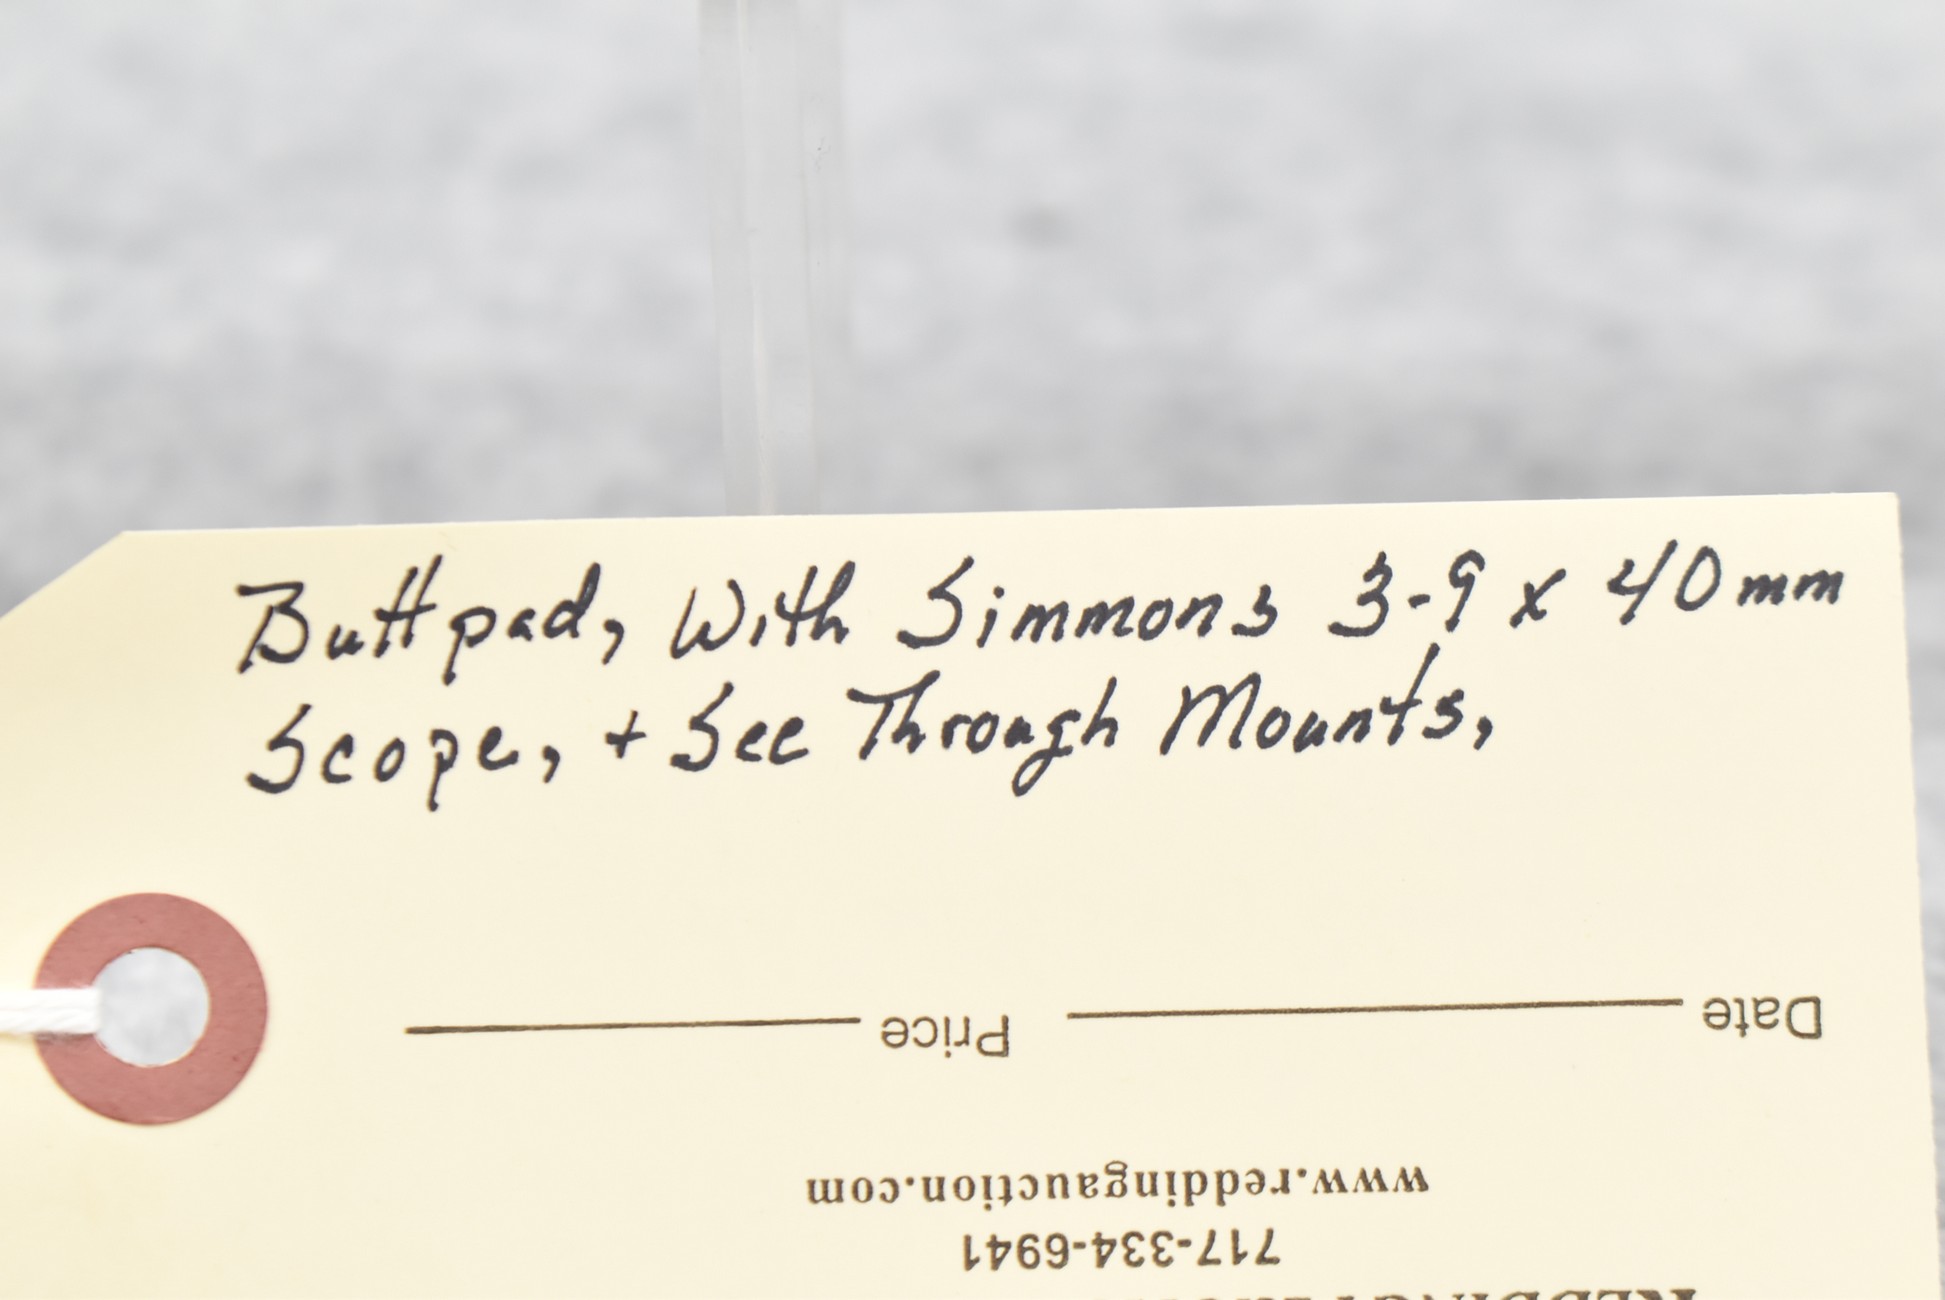 Buttpad, With Simmons 3-9 x 40mm
Scope, + See Through Mounts,
Date Price
www.reddingauction.com
717-334-6941